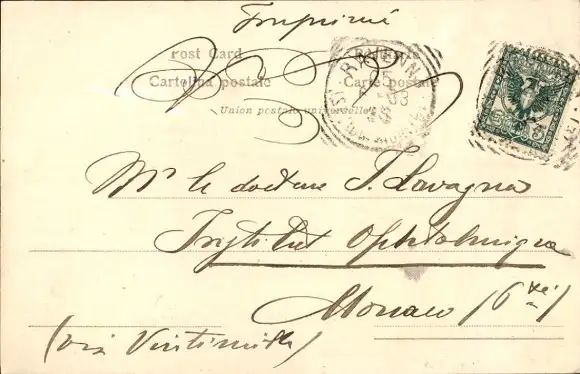 Imprimé
Post Card
Cartolina postale Carte postale
Union postale universelle
RAVENNA
Mr le docteur J. Lavagna
Institut Ophtalmique
Monaco (Pté)
(via Vintimille)